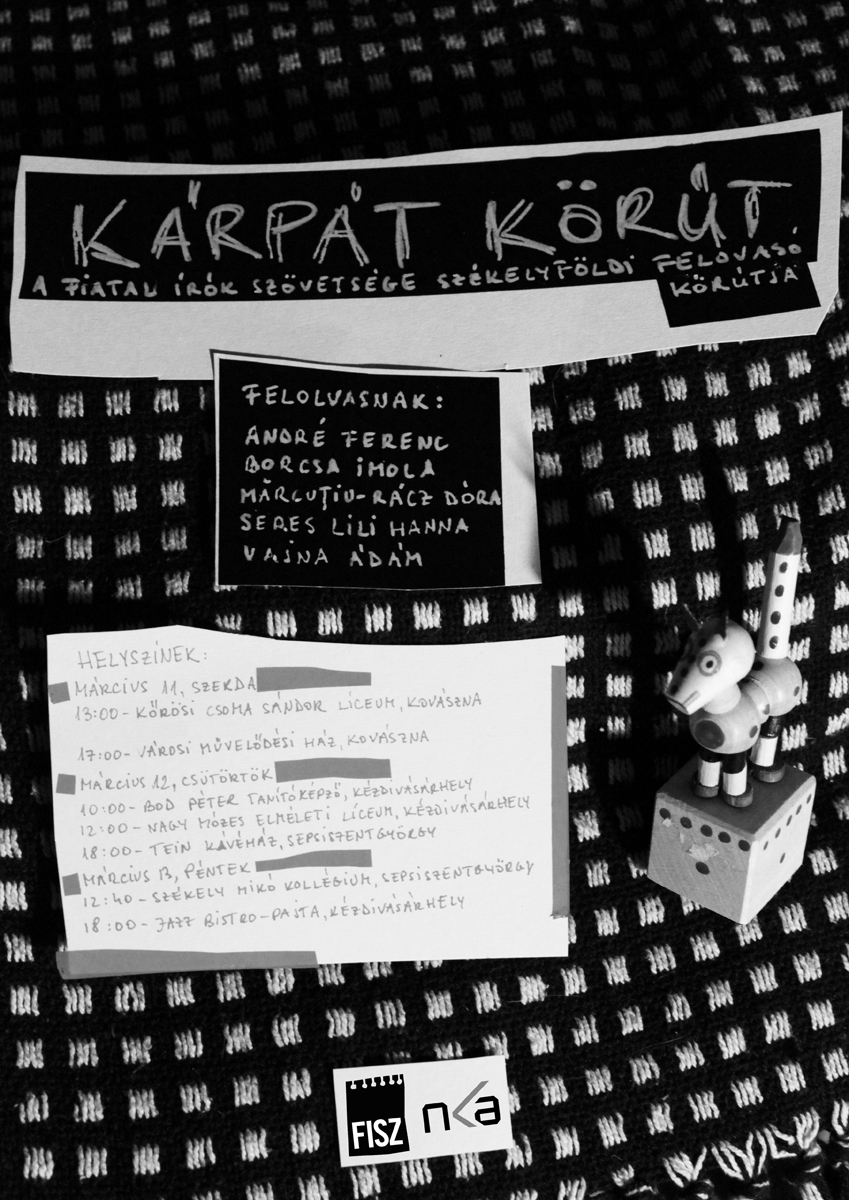 KÁRPÁT KÖRÚT
A FIATAL ÍRÓK SZÖVETSÉGE SZÉKELYFÖLDI FELOVASÓ
KÖRÚTJA
FELOLVASNAK:
ANDRÉ FERENC
BORCSA IMOLA
MĂRCUȚIU-RÁCZ DÓRA
SERES LILI HANNA
VAJNA ÁDÁM
HELYSZÍNEK:
MÁRCIUS 11, SZERDA
13:00 - KŐRÖSI CSOMA SÁNDOR LÍCEUM, KOVÁSZNA
17:00 - VÁROSI MŰVELŐDÉSI HÁZ, KOVÁSZNA
MÁRCIUS 12, CSÜTÖRTÖK
10:00 - BOD PÉTER TANÍTÓKÉPZŐ, KÉZDIVÁSÁRHELY
12:00 - NAGY MÓZES ELMÉLETI LÍCEUM, KÉZDIVÁSÁRHELY
18:00 - TEIN KÁVÉHÁZ, SEPSISZENTGYÖRGY
MÁRCIUS 13, PÉNTEK
12:40 - SZÉKELY MIKÓ KOLLÉGIUM, SEPSISZENTGYÖRGY
18:00 - JAZZ BISTRO-PAJTA, KÉZDIVÁSÁRHELY
FISZ nka